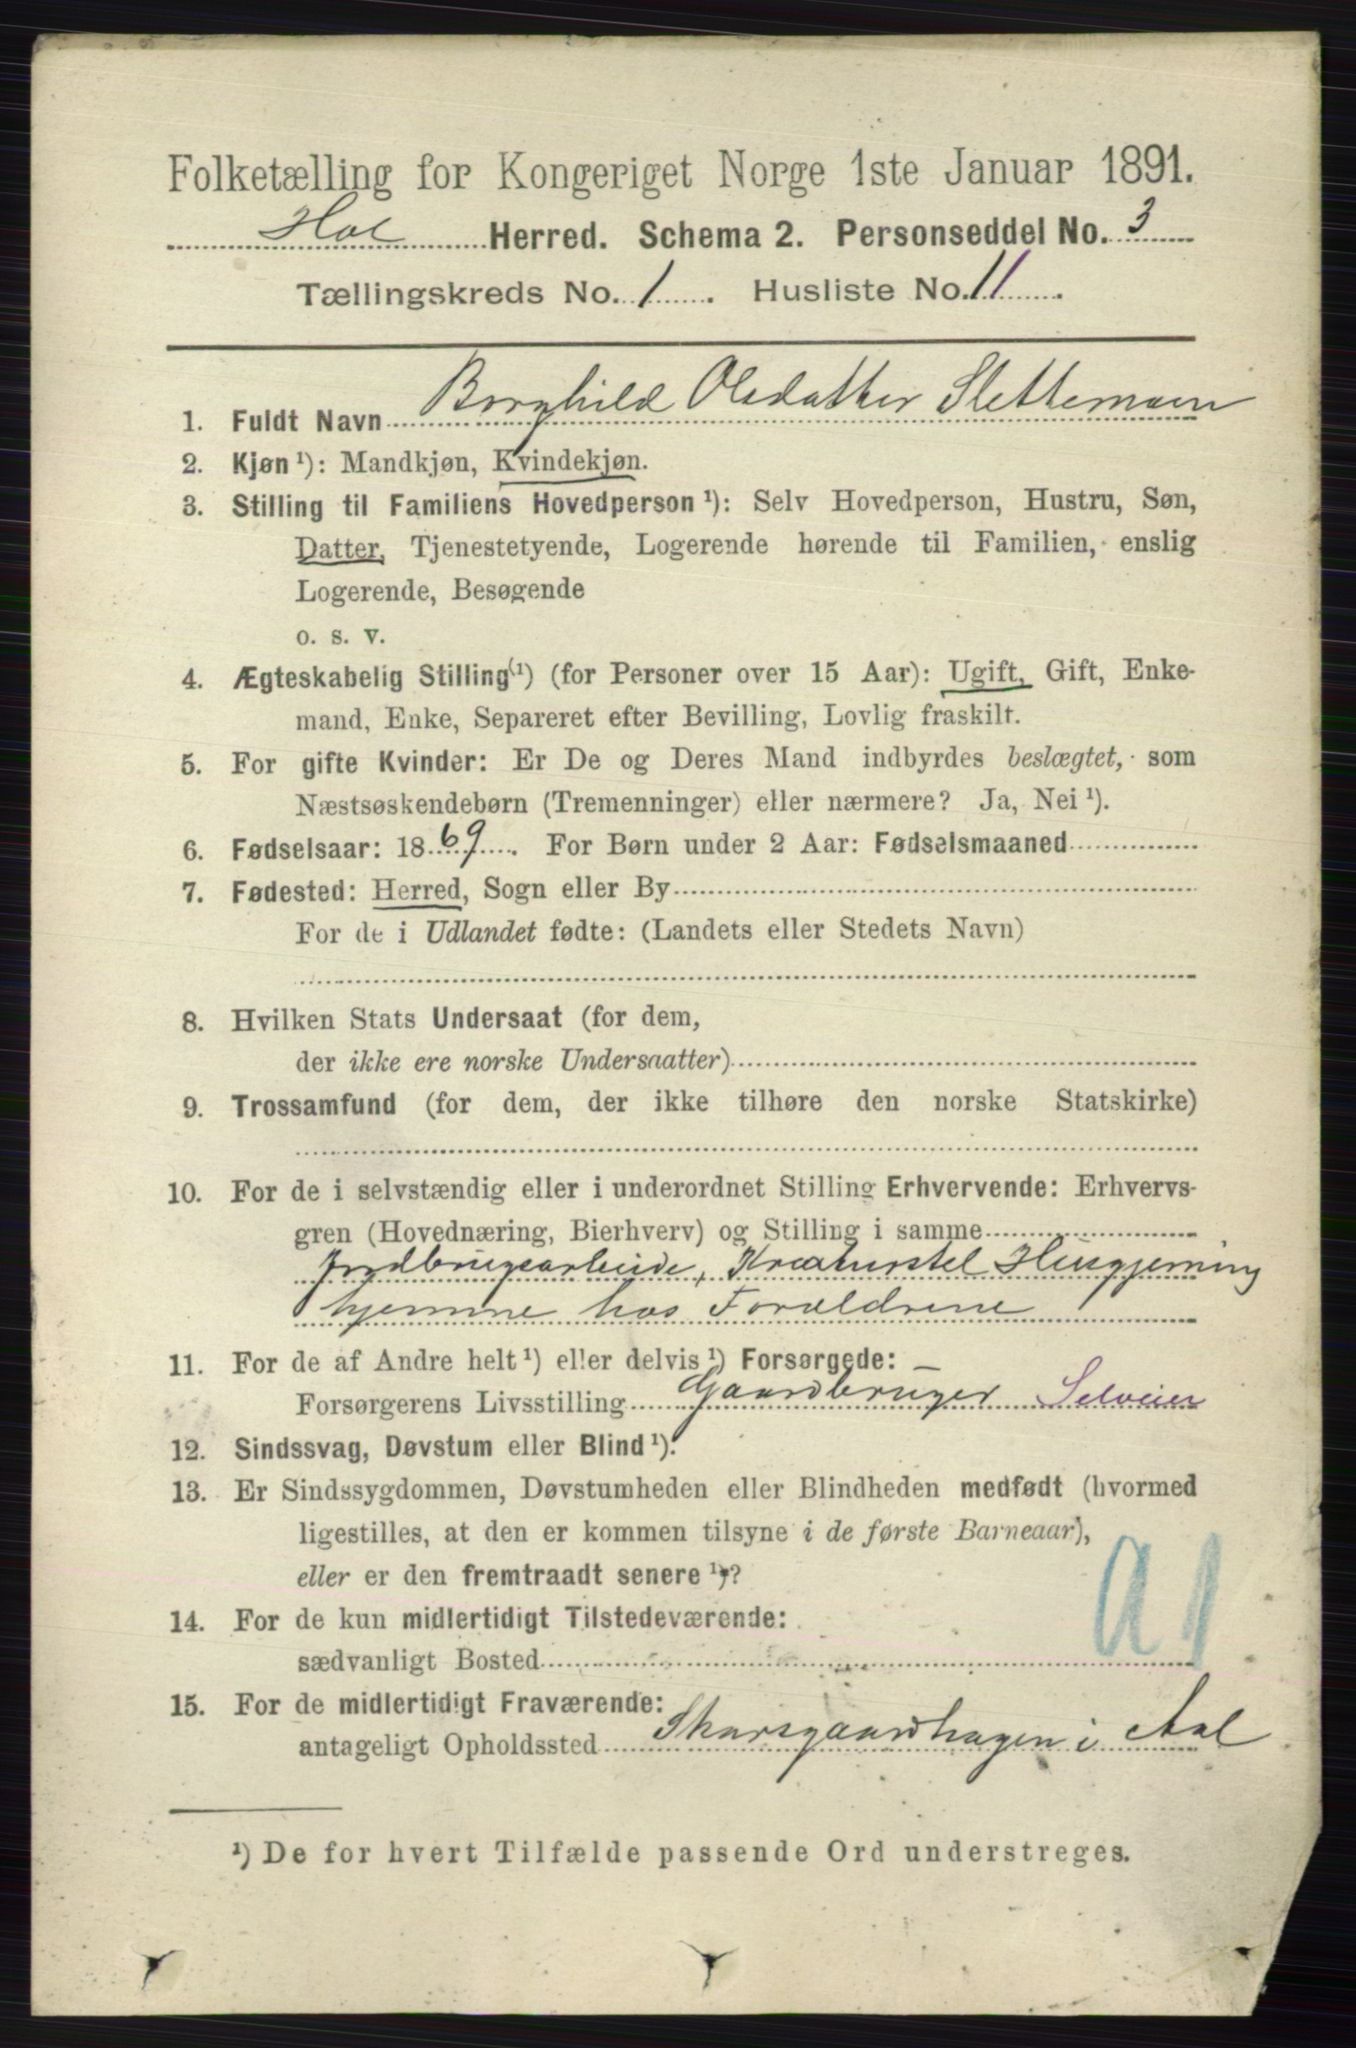 Folketælling for Kongeriget Norge 1ste Januar 1891.
Hol Herred. Schema 2. Personseddel No. 3
Tællingskreds No. 1. Husliste No. 11.
1. Fuldt Navn Borghild Olsdatter Slettemoen
2. Kjøn ¹): Mandkjøn, Kvindekjøn.
3. Stilling til Familiens Hovedperson ¹): Selv Hovedperson, Hustru, Søn,
Datter, Tjenestetyende, Logerende hørende til Familien, enslig
Logerende, Besøgende
o. s. v.
4. Ægteskabelig Stilling ¹) (for Personer over 15 Aar): Ugift, Gift, Enke-
mand, Enke, Separeret efter Bevilling, Lovlig fraskilt.
5. For gifte Kvinder: Er De og Deres Mand indbyrdes beslægtet, som
Næstsøskendebørn (Tremenninger) eller nærmere? Ja, Nei ¹).
6. Fødselsaar: 1869. For Børn under 2 Aar: Fødselsmaaned
7. Fødested: Herred, Sogn eller By
For de i Udlandet fødte: (Landets eller Stedets Navn)
8. Hvilken Stats Undersaat (for dem,
der ikke ere norske Undersaatter)
9. Trossamfund (for dem, der ikke tilhøre den norske Statskirke)
10. For de i selvstændig eller i underordnet Stilling Erhvervende: Erhvervs-
gren (Hovednæring, Bierhverv) og Stilling i samme
Jordbrugsarbeide, Kreaturstel Husgjerning
hjemme hos Forældrene
11. For de af Andre helt ¹) eller delvis ¹) Forsørgede: —
Forsørgerens Livsstilling Gaardbruger Selveier
12. Sindssvag, Døvstum eller Blind ¹).
13. Er Sindssygdommen, Døvstumheden eller Blindheden medfødt (hvormed
ligestilles, at den er kommen tilsyne i de første Barneaar),
eller er den fremtraadt senere ¹)?
14. For de kun midlertidigt Tilstedeværende:
sædvanligt Bosted
a 1
15. For de midlertidigt Fraværende:
antageligt Opholdssted Skarsgaardhagen i Aal
¹) De for hvert Tilfælde passende Ord understreges.